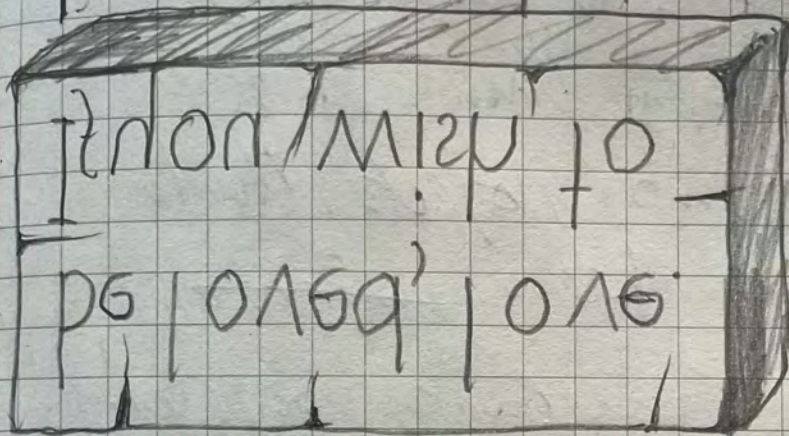 If you wish to
be loved, love.